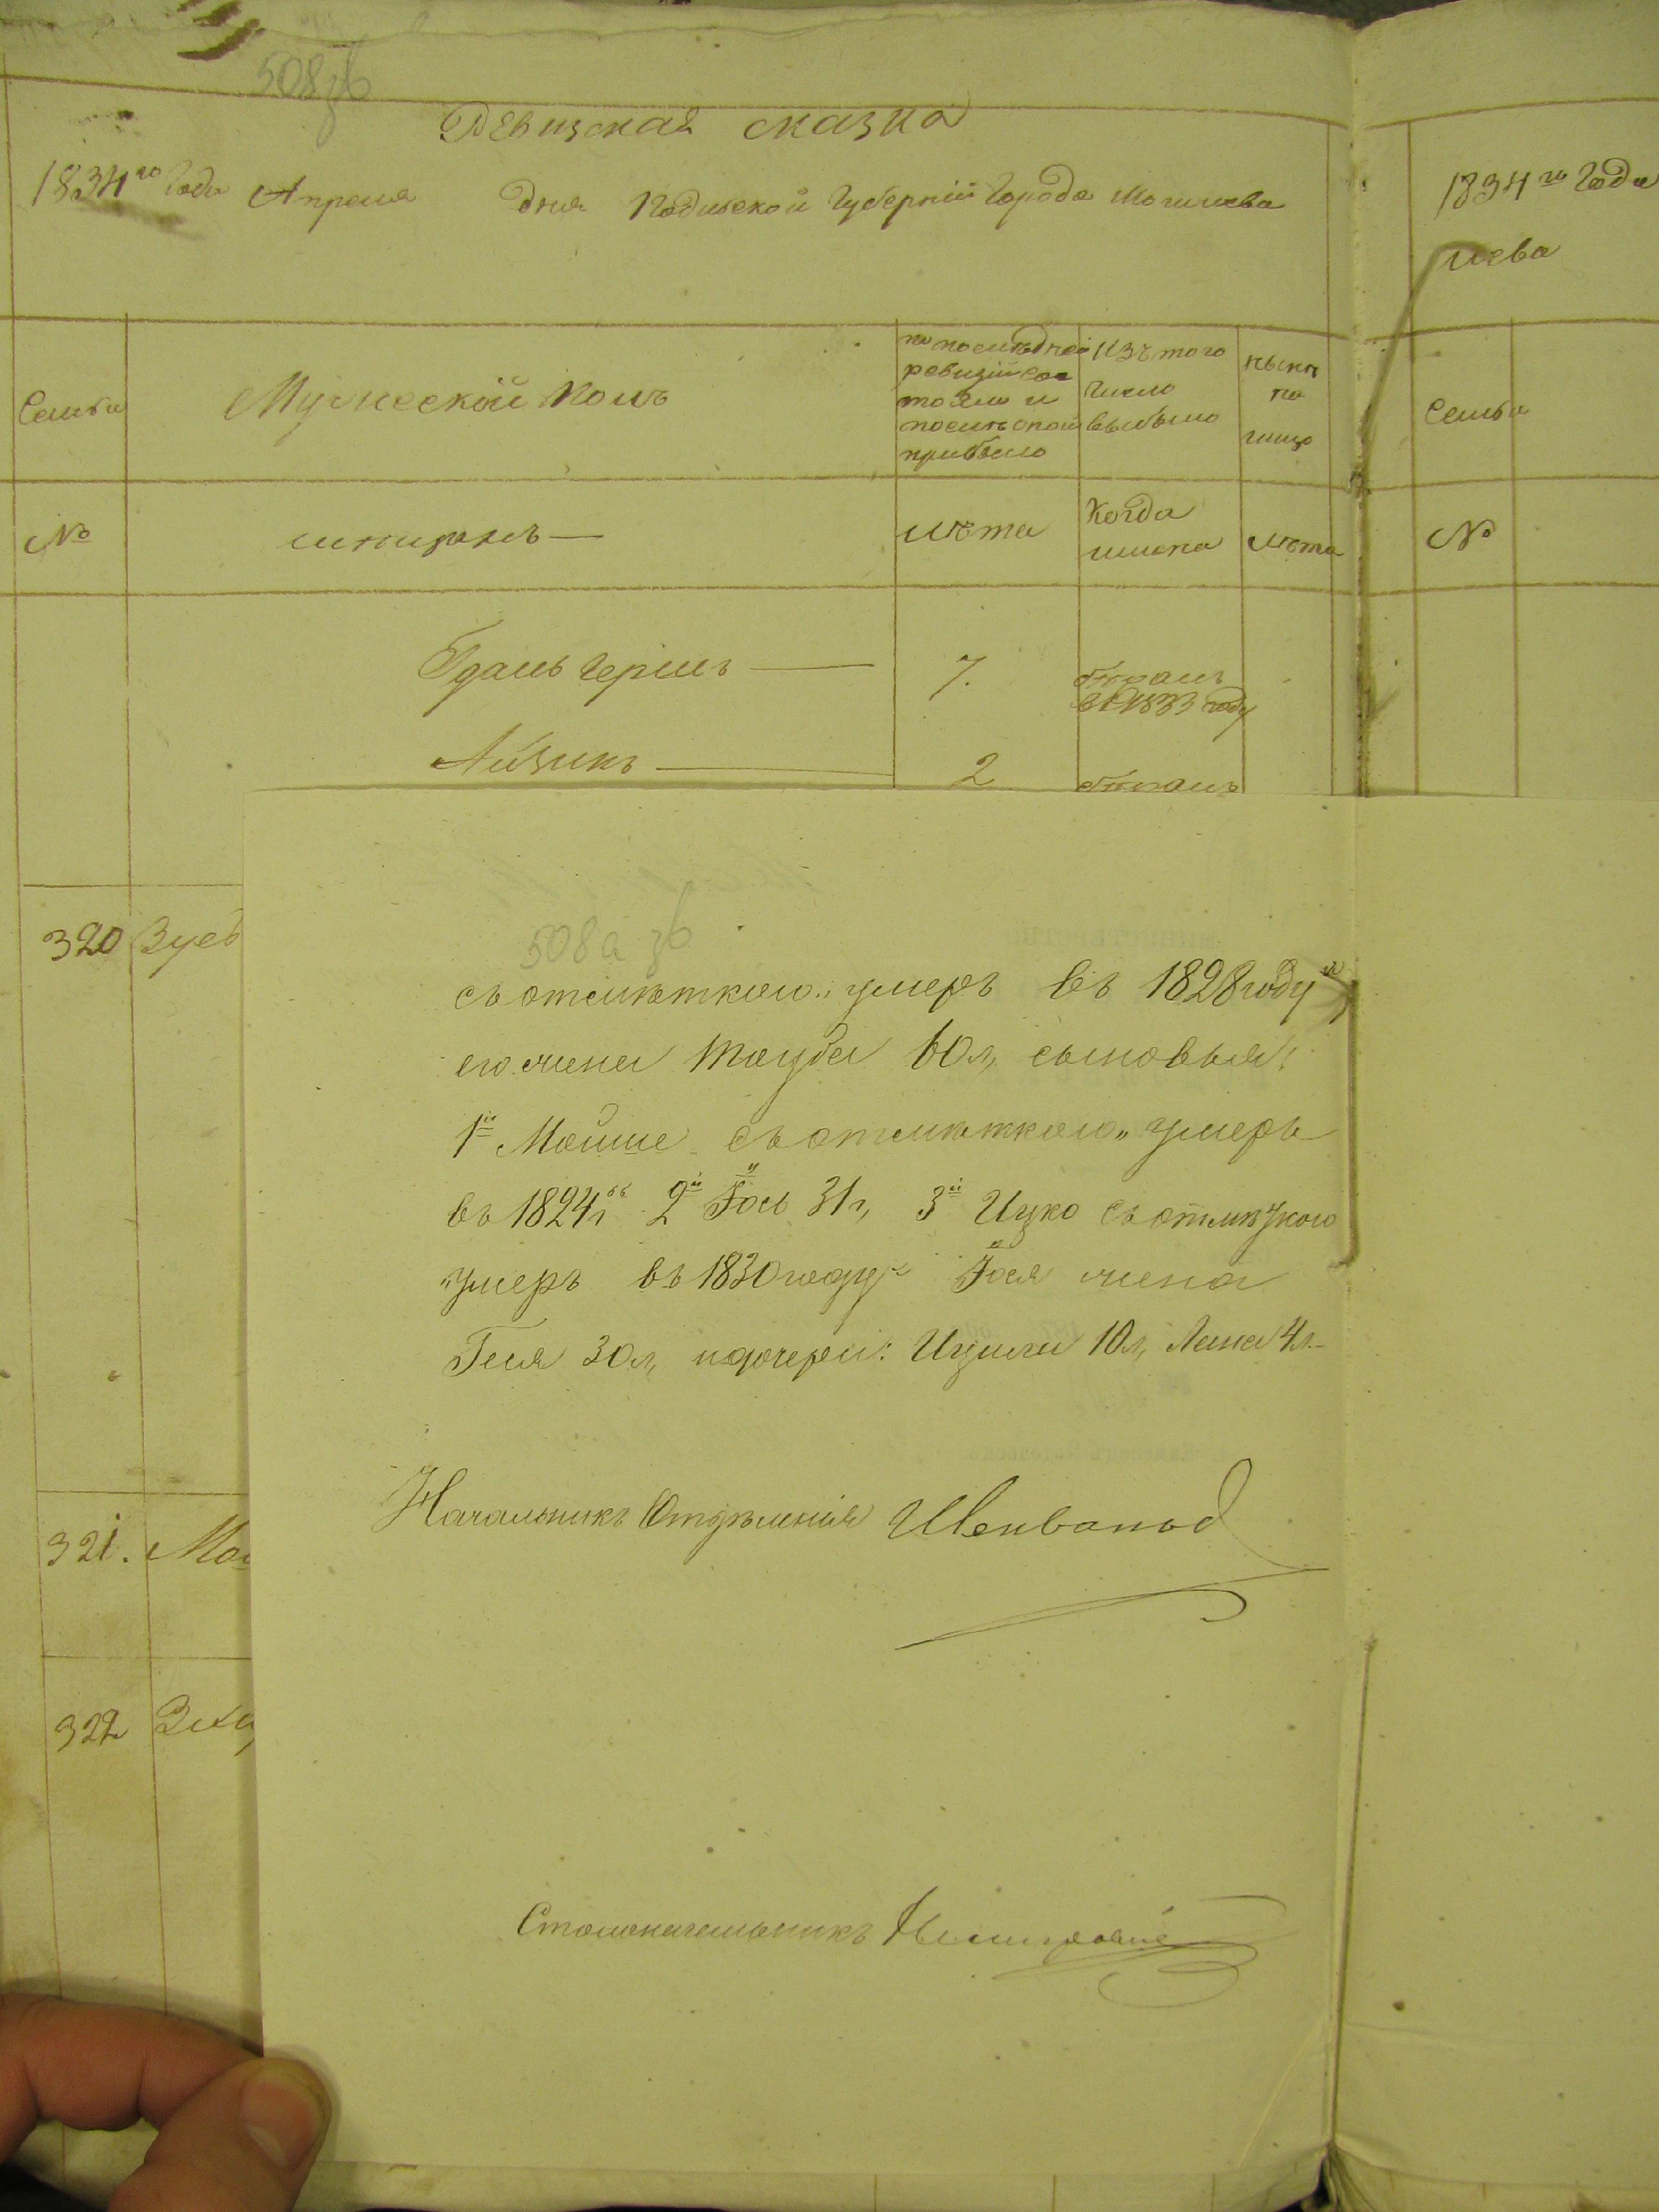 508 зв
Ревизская сказка
1834го Года Апреля дня Подольской Губернии Города Могилева
1834го Года
лева
Семьи
Мужеский полъ
по последней ревизии состояло и после оной прибыло
Изъ того числа выбыло
ныне на лицо
Семьи
№
мещанъ
лета
Когда имена
лета
№
Гершъ
7.
въ 1833 году
Айзикъ
2
320
508а зв
съ отметкою „умеръ въ 1828 году“
его жена Тауба 60 л, сыновья:
1й Мойше съ отметкою „умеръ
въ 1824 г“ 2й Іось 31 г, 3й Ицко съ отметкою
„умеръ въ 1830 году“ Іося жена
Геня 30 л, дочери: 10 л, 4 л.
Начальникъ Отделения
321.
322
Столоначальникъ